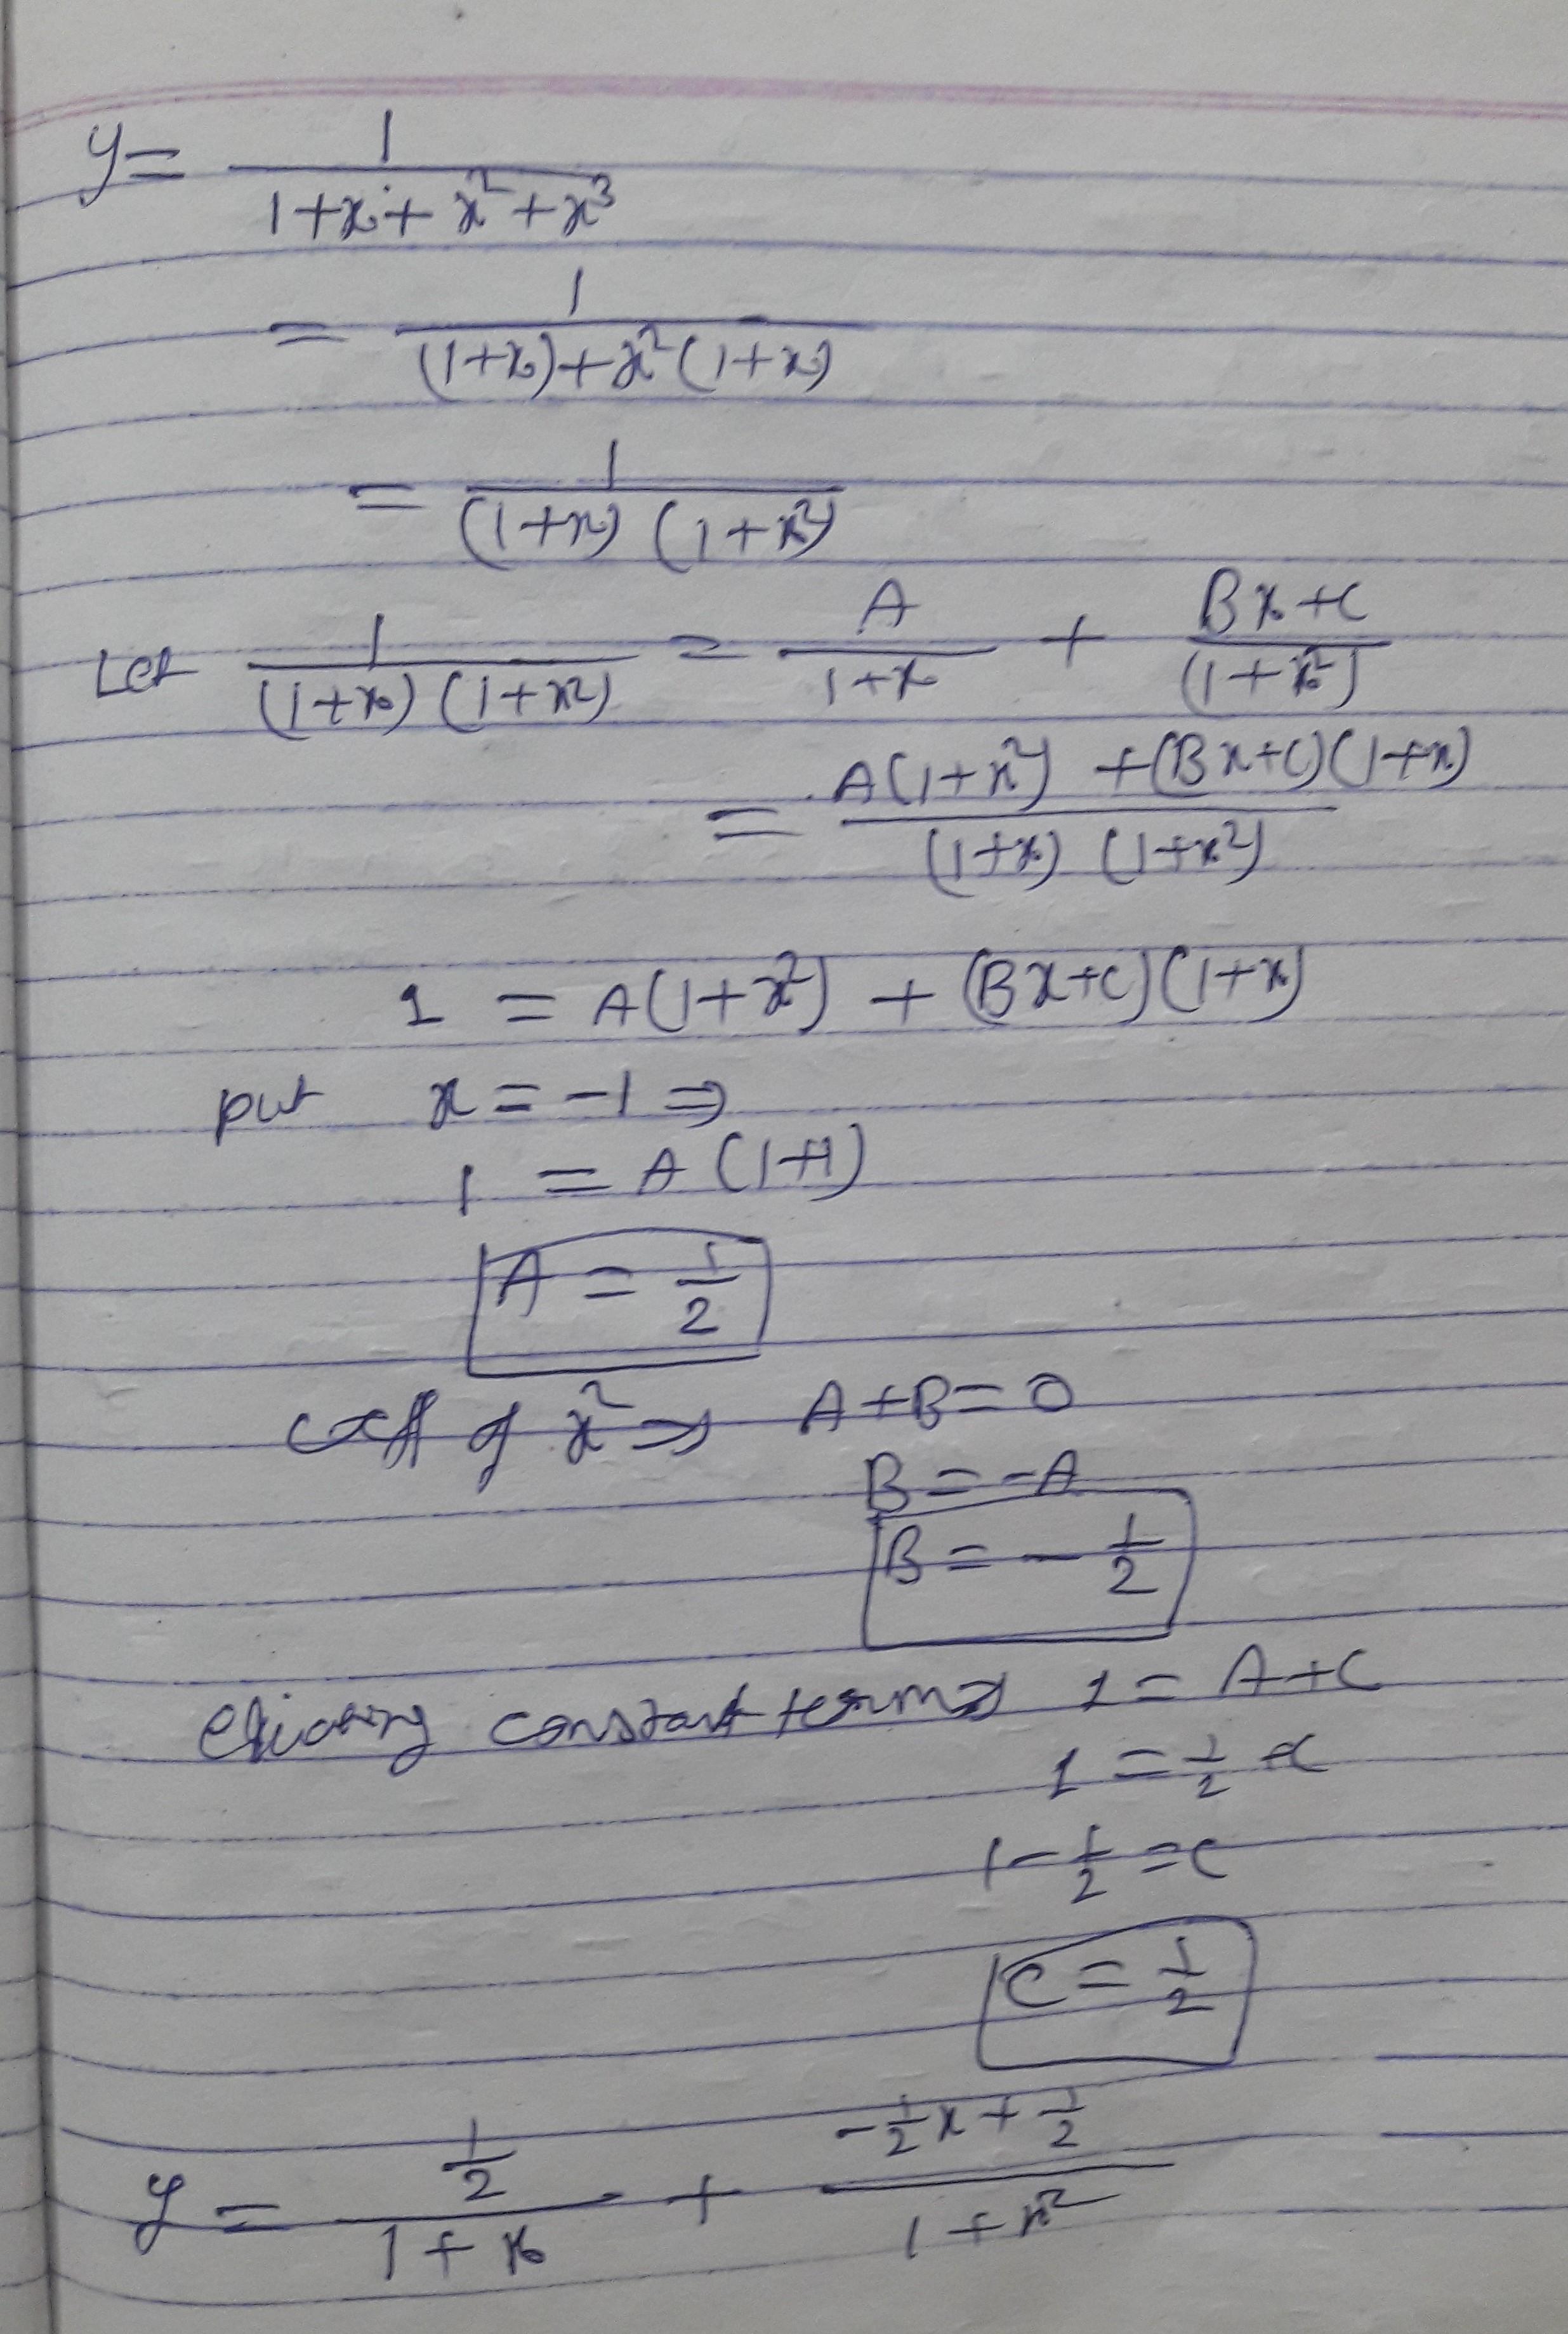 y = 1/(1+x+x²+x³)
= 1/((1+x)+x²(1+x))
= 1/((1+x)(1+x²))
Let 1/((1+x)(1+x²)) = A/(1+x) + (Bx+C)/(1+x²)
= (A(1+x²)+(Bx+C)(1+x))/((1+x)(1+x²))
1 = A(1+x²) + (Bx+C)(1+x)
put x = -1 ⇒
1 = A(1+1)
A = 1/2
coff of x² ⇒ A+B=0
B = -A
B = -1/2
constant terms 1 = A+C
1 = 1/2 +C
1 - 1/2 = C
C = 1/2
y = (1/2)/(1+x) + (-1/2 x + 1/2)/(1+x²)